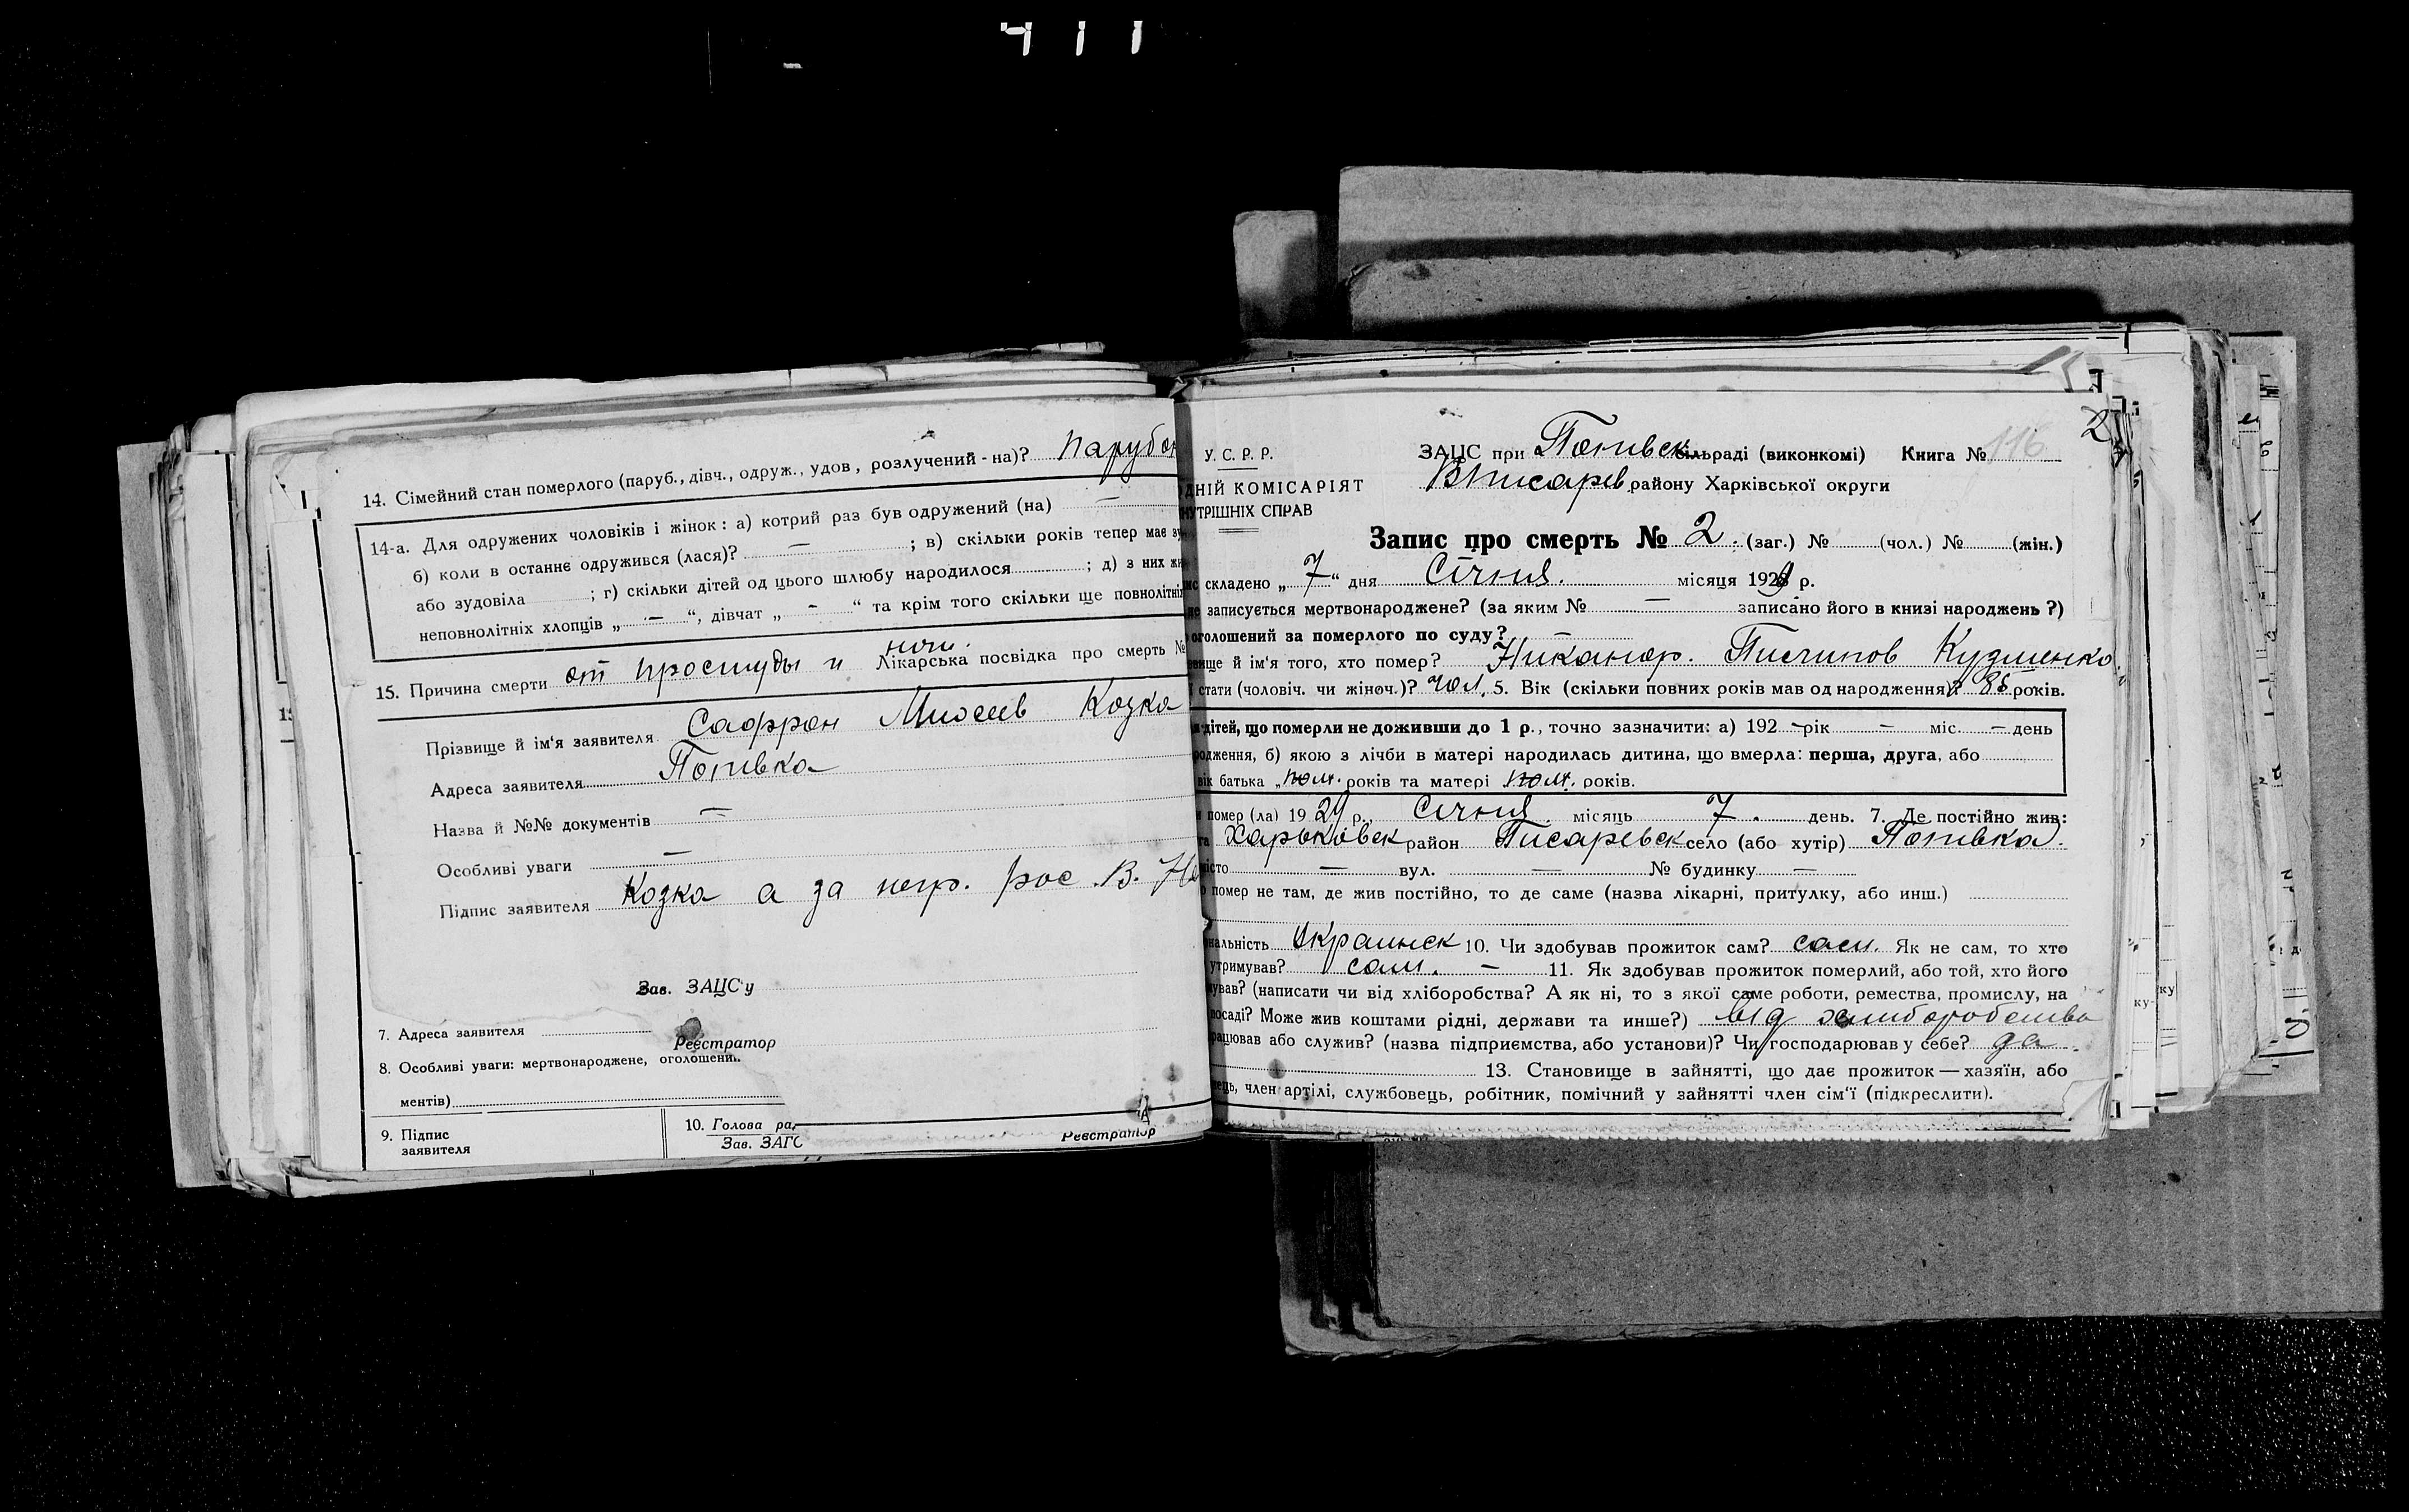 411
14. Сімейний стан померлого (паруб., дівч., одруж., удов, розлучений-на)? Парубок
14-а. Для одружених чоловіків і жінок: а) котрий раз був одружений (на) —
б) коли в останнє одружився (лася)? — ; в) скільки років тепер має
або зудовіла ; г) скільки дітей од цього шлюбу народилося ; д) з них
неповнолітніх хлопців „ — “, дівчат „ — “ та крім того скільки ще повнолітніх
15. Причина смерти от простуды и Лікарська посвідка про смерть №
Прізвище й ім'я заявителя Козка
Адреса заявителя Попивка
Назва й №№ документів —
Особливі уваги —
Підпис заявителя Козка а за негр. рос. В.
Зав. ЗАЦС'у
Реєстратор
7. Адреса заявителя
8. Особливі уваги: мертвонароджене, оголошени
ментів)
9. Підпис
заявителя
10. Голова ра
Зав. ЗАГС
Реєстратор
2
У. С. Р. Р.
ДНІЙ КОМІСАРІЯТ
УТРІШНІХ СПРАВ
ЗАЦС при Попивск сільраді (виконкомі) Книга № 116
ВПисарев району Харківської округи
Запис про смерть № 2. (заг.) № (чол.) № (жін.)
складено „ 7 “ дня Січня. місяця 1929 р.
записується мертвонароджене? (за яким № — записано його в книзі народжень?)
оголошений за померлого по суду? —
й ім'я того, хто помер? Никанор. Кузменко
стати (чоловіч. чи жіноч.)? чол. 5. Вік (скільки повних років мав од народження)? 85 років.
дітей, що померли не доживши до 1 р., точно зазначити: а) 192 — рік — міс. — день
б) якою з лічби в матері народилась дитина, що вмерла: перша, друга, або
вік батька „ пом. років та матері пом. років.
помер (ла) 1929 р., Січня. місяць 7. день. 7. Де постійно жив:
Харьковск район Писаревск село (або хутір) Попивка.
— вул. — № будинку —
помер не там, де жив постійно, то де саме (назва лікарні, притулку, або инш.)
Украинск 10. Чи здобував прожиток сам? сам. Як не сам, то хто
утримував? сам. — 11. Як здобував прожиток померлий, або той, хто його
(написати чи від хліборобства? А як ні, то з якої саме роботи, ремества, промислу, на
посаді? Може жив коштами рідні, держави та инше?) від хлиборобства
або служив? (назва підприємства, або установи)? Чи господарював у себе? да.
13. Становище в зайнятті, що дає прожиток — хазяїн, або
член артілі, службовець, робітник, помічний у зайнятті член сім'ї (підкреслити).